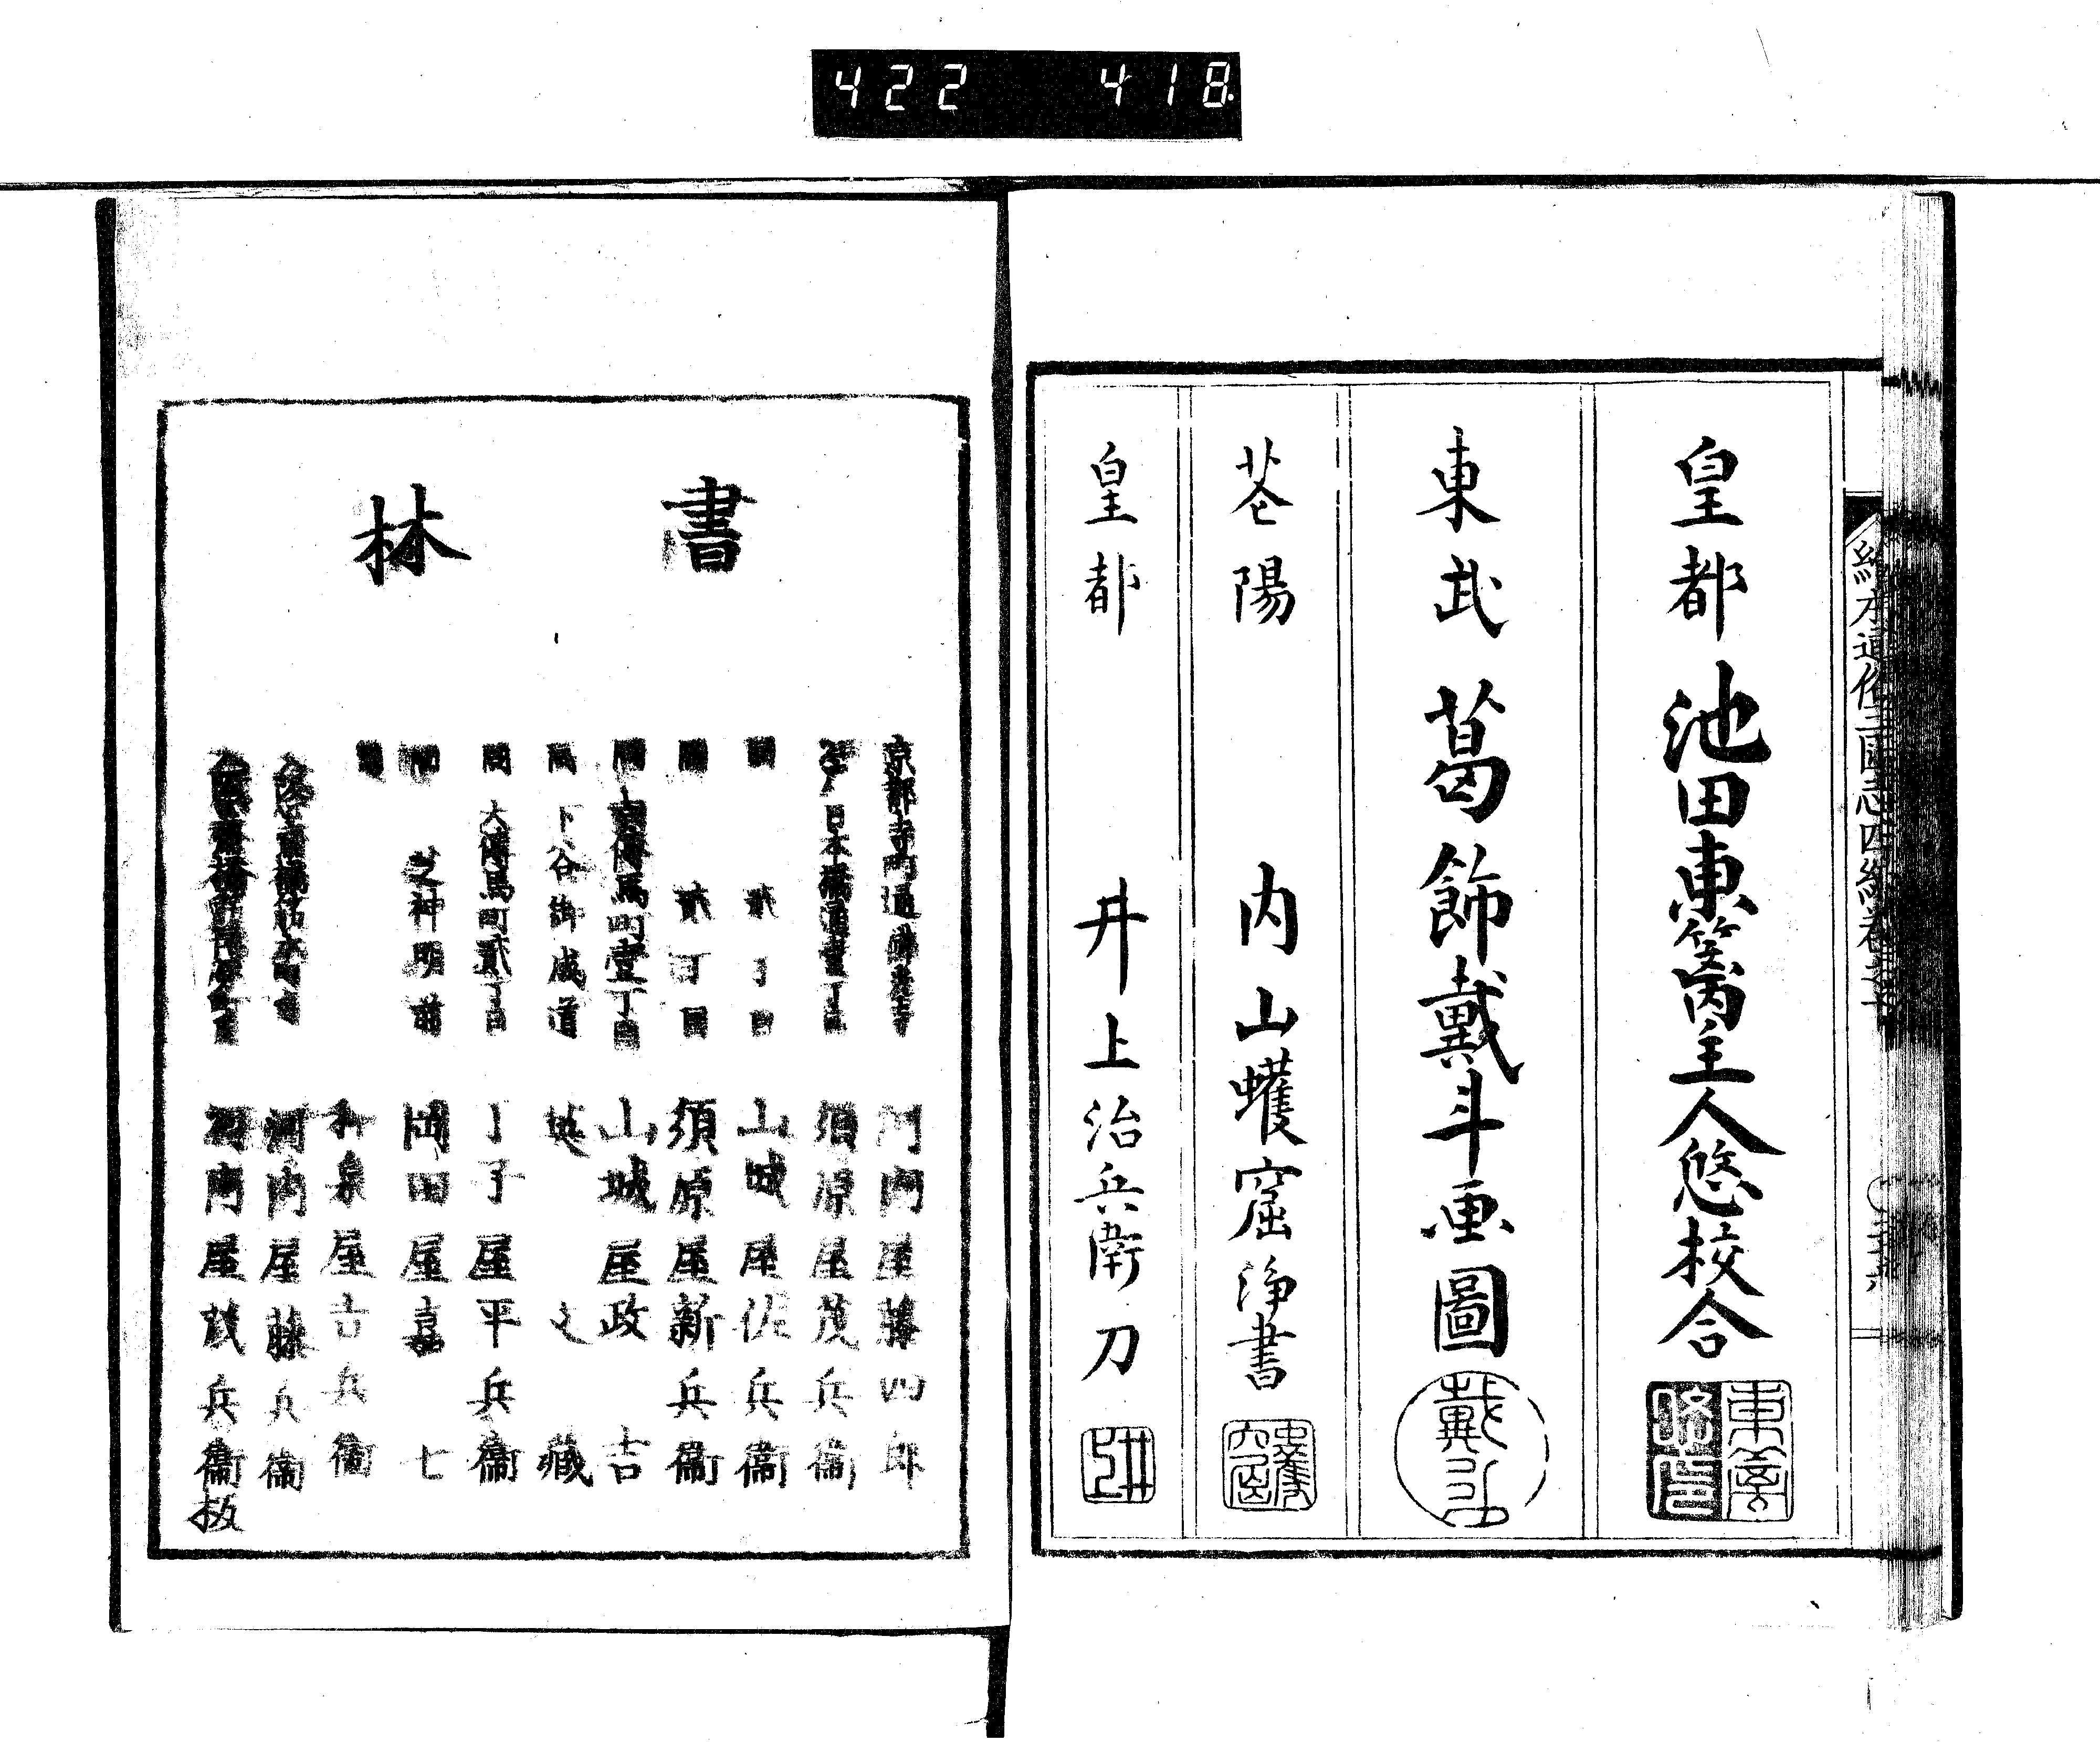 422 418
繪本通俗三國志四編卷之十
皇都 池田東籬主人悠校合
東武 葛飾戴斗画圖
荅陽 内山蠖窟浄書
皇都 井上治兵衛刀
書林
京都寺町通佛光寺 河内屋藤四郎
江戸日本橋通壹丁目 須原屋茂兵衞
同 貳丁目 山城屋佐兵衞
同 貳丁目 須原屋新兵衞
同 本傳馬町壹丁目 山城屋政吉
同 下谷御成道 英文藏
同 大傳馬町貳丁目 丁子屋平兵衞
同 芝神明前 岡田屋嘉七
同 和泉屋吉兵衞
大阪心齋橋筋本町 河内屋藤兵衞
河内屋茂兵衞板